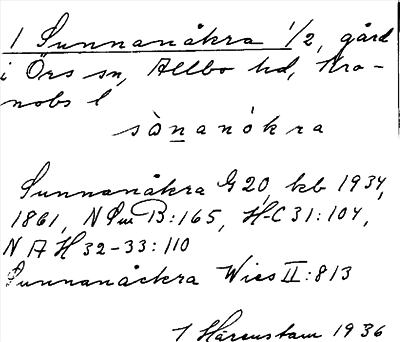 1 Sunnanåkra 1/2, gård
i Örs sn, Allbo hd, Kro-
nobs l
sònanókra
Sunnanåkra G 20, kb 1934,
1861, N Sm B:165, H-C 31:104,
N A H 32-33:110
Sunnanåckra Wies II:813
1 Härenstam 1936